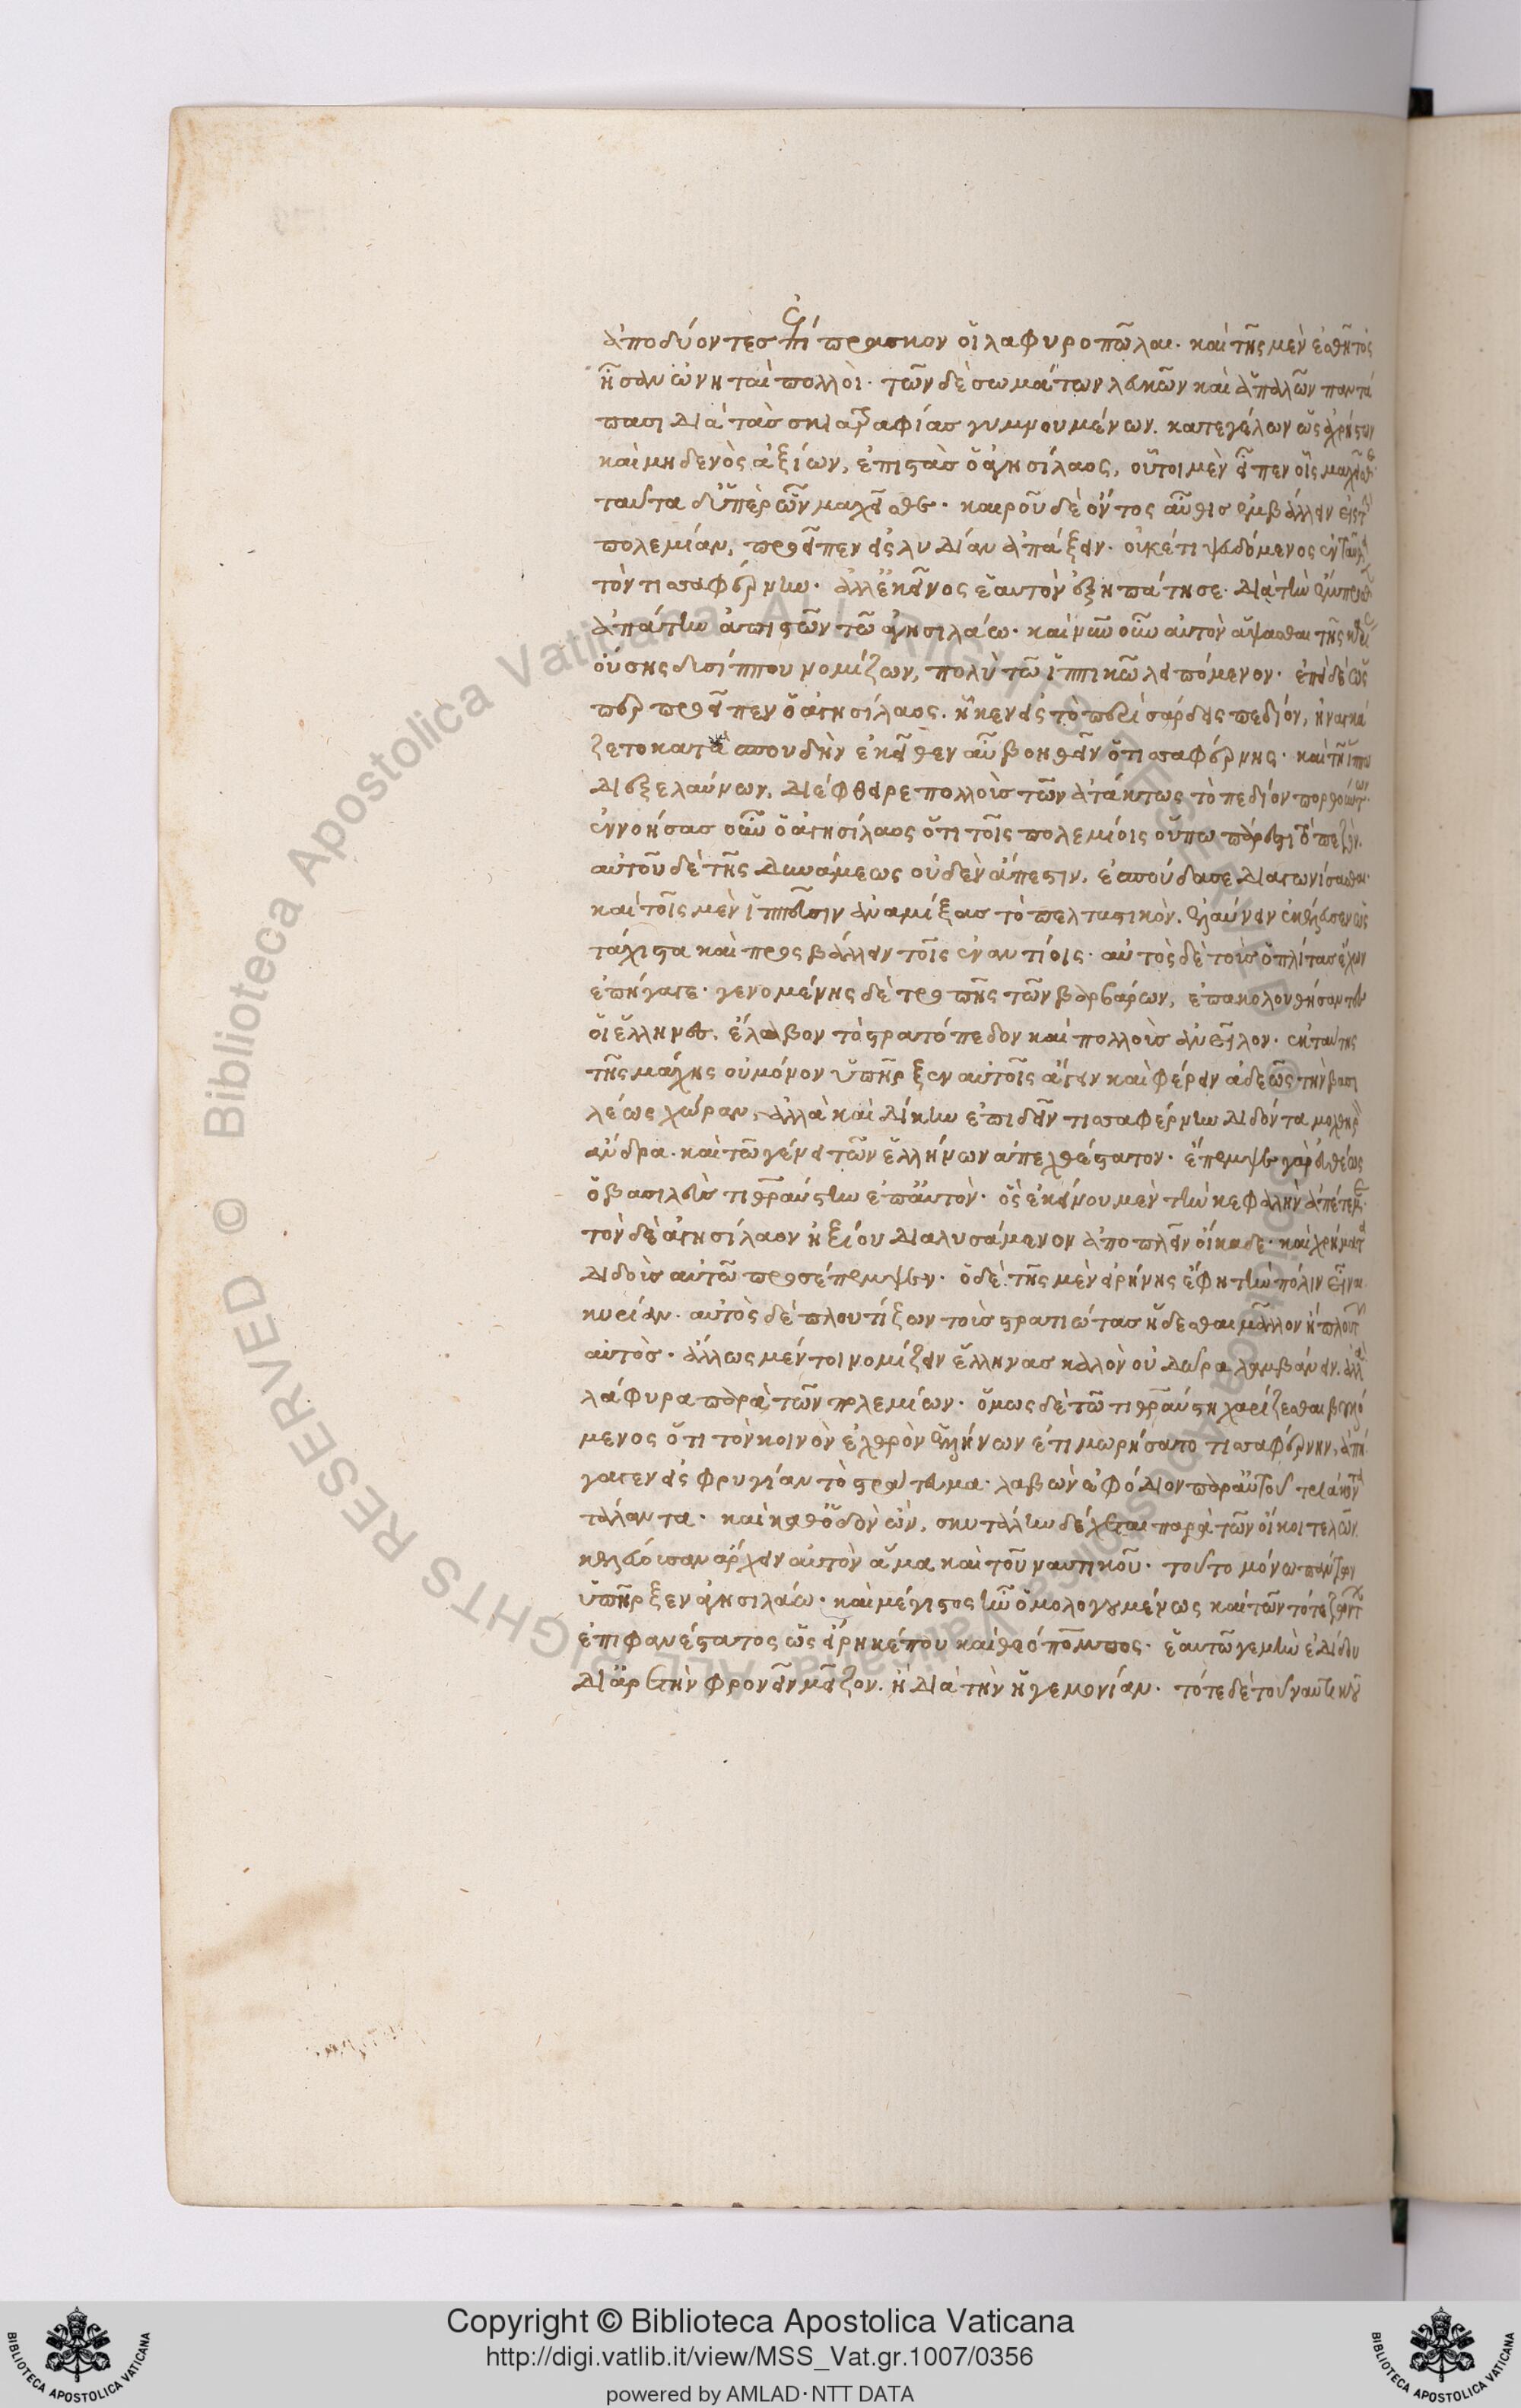 ἀποδύοντες ἐπίπρασκον οἱ λαφυροπῶλαι· καὶ τῆς μὲν ἐσθῆτος
ἦσαν ὠνηταὶ πολλοὶ· τῶν δὲ σωμάτων λευκῶν καὶ ἁπαλῶν παντά
πασι διὰ τὰς σκιατραφίας γυμνουμένων. κατεγέλων ὡς ἀχρήστων
καὶ μηδενὸς ἀξίων, ἐπιστὰς ὁ ἀγησίλαος, οὗτοι μὲν εἶπεν οἷς μάχεσθε·
ταῦτα δ' ὑπὲρ ὧν μάχεσθε· καιροῦ δὲ ὄντος αὖθις ἐμβάλλειν εἰς τὴν
πολεμίαν, προεῖπεν εἰς λυδίαν ἀπάξειν· οὐκέτι ψευδόμενος ἐνταῦθα
τὸν τισσαφέρνην· ἀλλ' ἐκεῖνος ἑαυτὸν ἐξηπάτησε· διὰ τὴν ἔμπροσθεν
ἀπάτην ἀπιστῶν τῶ ἀγησιλάω· καὶ νῦν οὖν αὐτὸν ἅψασθαι τῆς καρί
οὔσης δυσίππου νομίζων, πολὺ τῶ ἱππικῶ λειπόμενον· ἐπεὶ δὲ ὡς
περ προεῖπεν ὁ ἀγησίλαος. ἧκεν εἰς τὸ περὶ σάρδεις πεδίον, ἠναγκά
ζετο κατὰ σπουδὴν ἐκεῖθεν αὖ βοηθεῖν ὁ τισσαφέρνης· καὶ τῆ ἵππω
διεξελαύνων, διέφθειρε πολλοὺς τῶν ἀτάκτως τὸ πεδίον πορθούντων·
ἐννοήσας οὖν ὁ ἀγησίλαος ὅτι τοῖς πολεμίοις οὔπω πάρεστι τὸ πεζὸν.
αὐτοῦ δὲ τῆς δυνάμεως οὐδὲν ἄπεστιν, ἔσπουδασε διαγωνίσασθαι·
καὶ τοῖς μὲν ἱππεῦσιν ἀναμίξας τὸ πελταστικὸν, ἐλαύνειν ἐκέλευσεν ὡς
τάχιστα καὶ προςβάλλειν τοῖς ἐναντίοις· αὐτὸς δὲ τοὺς ὁπλίτας ἔχων
ἐπήγαγε· γενομένης δὲ τροπῆς τῶν βαρβάρων, ἐπακολουθήσαντες
οἱ ἕλληνες, ἔλαβον τὸ στρατόπεδον καὶ πολλοὺς ἀνεῖλον· ἐκ ταύτης
τῆς μάχης οὐ μόνον ὑπῆρξεν αὐτοῖς ἄγειν καὶ φέρειν ἀδεῶς τὴν βασι
λέως χώραν, ἀλλὰ καὶ δίκην ἐπιδεῖν τισσαφέρνην διδόντα μοχθηρὸν
ἄνδρα. καὶ τῶ γένει τῶν ἑλλήνων ἀπεχθέστατον· ἔπεμψε γὰρ εὐθέως
ὁ βασιλεὺς τιθραύστην ἐπ' αὐτὸν· ὃς ἐκείνου μὲν τὴν κεφαλὴν ἀπέτεμε·
τὸν δὲ ἀγησίλαον ἠξίου διαλυσάμενον ἀποπλεῖν οἴκαδε· καὶ χρήματα
διδοὺς αὐτῶ προσέπεμψεν· ὁ δὲ τῆς μὲν εἰρήνης ἔφη τὴν πόλιν εἶναι
κυρίαν· αὐτὸς δὲ πλουτίζων τοὺς στρατιώτας ἥδεσθαι μᾶλλον ἢ πλουτῶν
αὐτὸς· ἄλλως μέντοι νομίζειν ἕλληνας καλὸν οὐ δῶρα λαμβάνειν. ἀλλὰ
λάφυρα παρὰ τῶν πολεμίων· ὅμως δὲ τῶ τιθραύστη χαρίζεσθαι βουλό
μενος ὅτι τὸν κοινὸν ἐχθρὸν ἑλλήνων ἐτιμωρήσατο τισσαφέρνην, ἀπή
γαγεν εἰς φρυγίαν τὸ στράτευμα· λαβὼν ἐφόδιον παρ' αὐτοῦ τριάκοντα
τάλαντα· καὶ καθ' ὁδὸν ὢν, σκυτάλην δέχεται παρὰ τῶν οἴκοι τελῶν
κελεύουσαν ἄρχειν αὐτὸν ἅμα καὶ τοῦ ναυτικοῦ· τοῦτο μόνω πάντων
ὑπῆρξεν ἀγησιλάω· καὶ μέγιστος ἦν ὁμολογουμένως καὶ τῶν τότε ζώντων
ἐπιφανέστατος ὡς εἴρηκέ που καὶ θεόπομπος· ἑαυτῶ γε μὴν ἐδίδου
δι' ἀρετὴν φρονεῖν μεῖζον. ἢ διὰ τὴν ἡγεμονίαν· τότε δὲ τοῦ ναυτικοῦ
Copyright © Biblioteca Apostolica Vaticana
http://digi.vatlib.it/view/MSS_Vat.gr.1007/0356
powered by AMLAD·NTT DATA